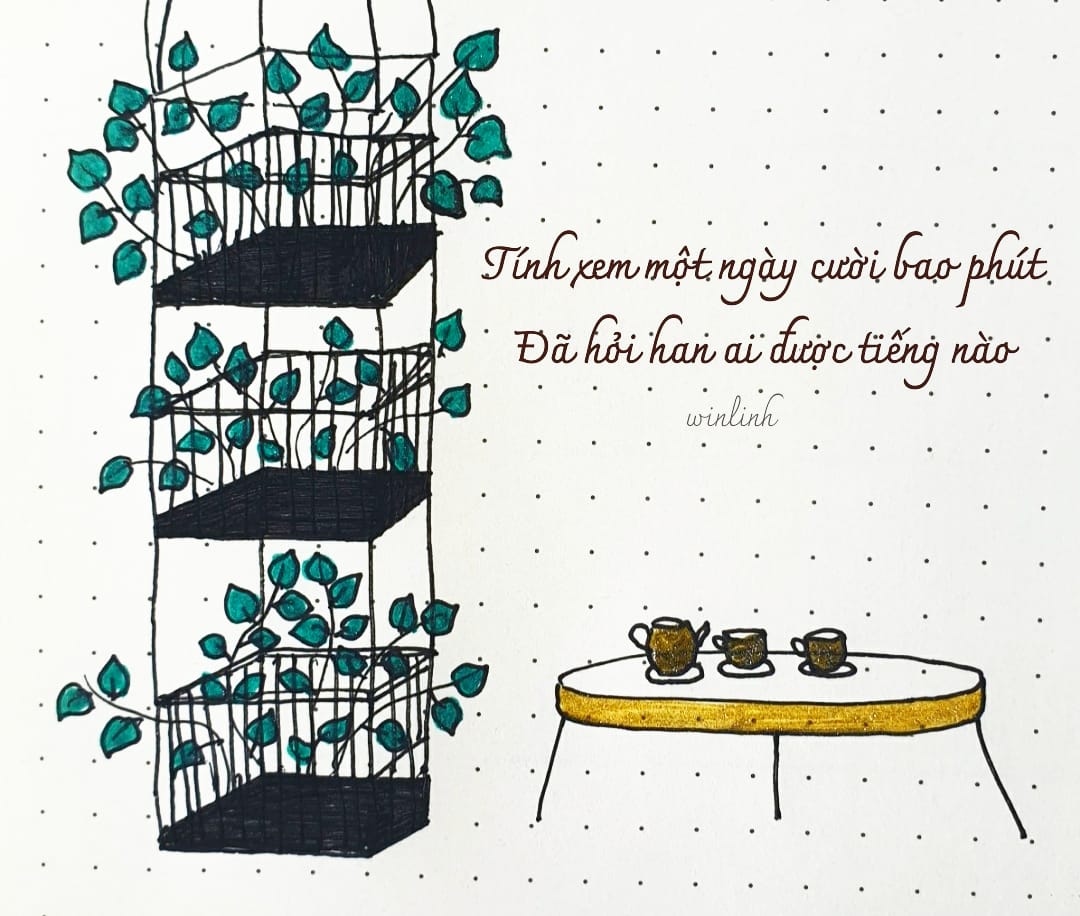 Tính xem một ngày cười bao phút
Đã hỏi han ai được tiếng nào
winlinh